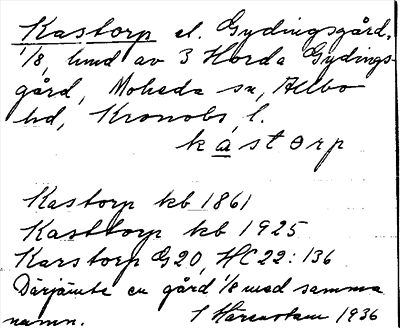 Kastorp el. Gydingsgård,
1/8, lund av 3 Horda Gydings-
gård, Moheda sn, Allbo
hd, Kronobs l.
kastorp
Kastorp kb 1861
Kasttorp kb 1925
Karstorp G20, HC22:136
Därjämte en gård 1/8 med samma
namn. 1936